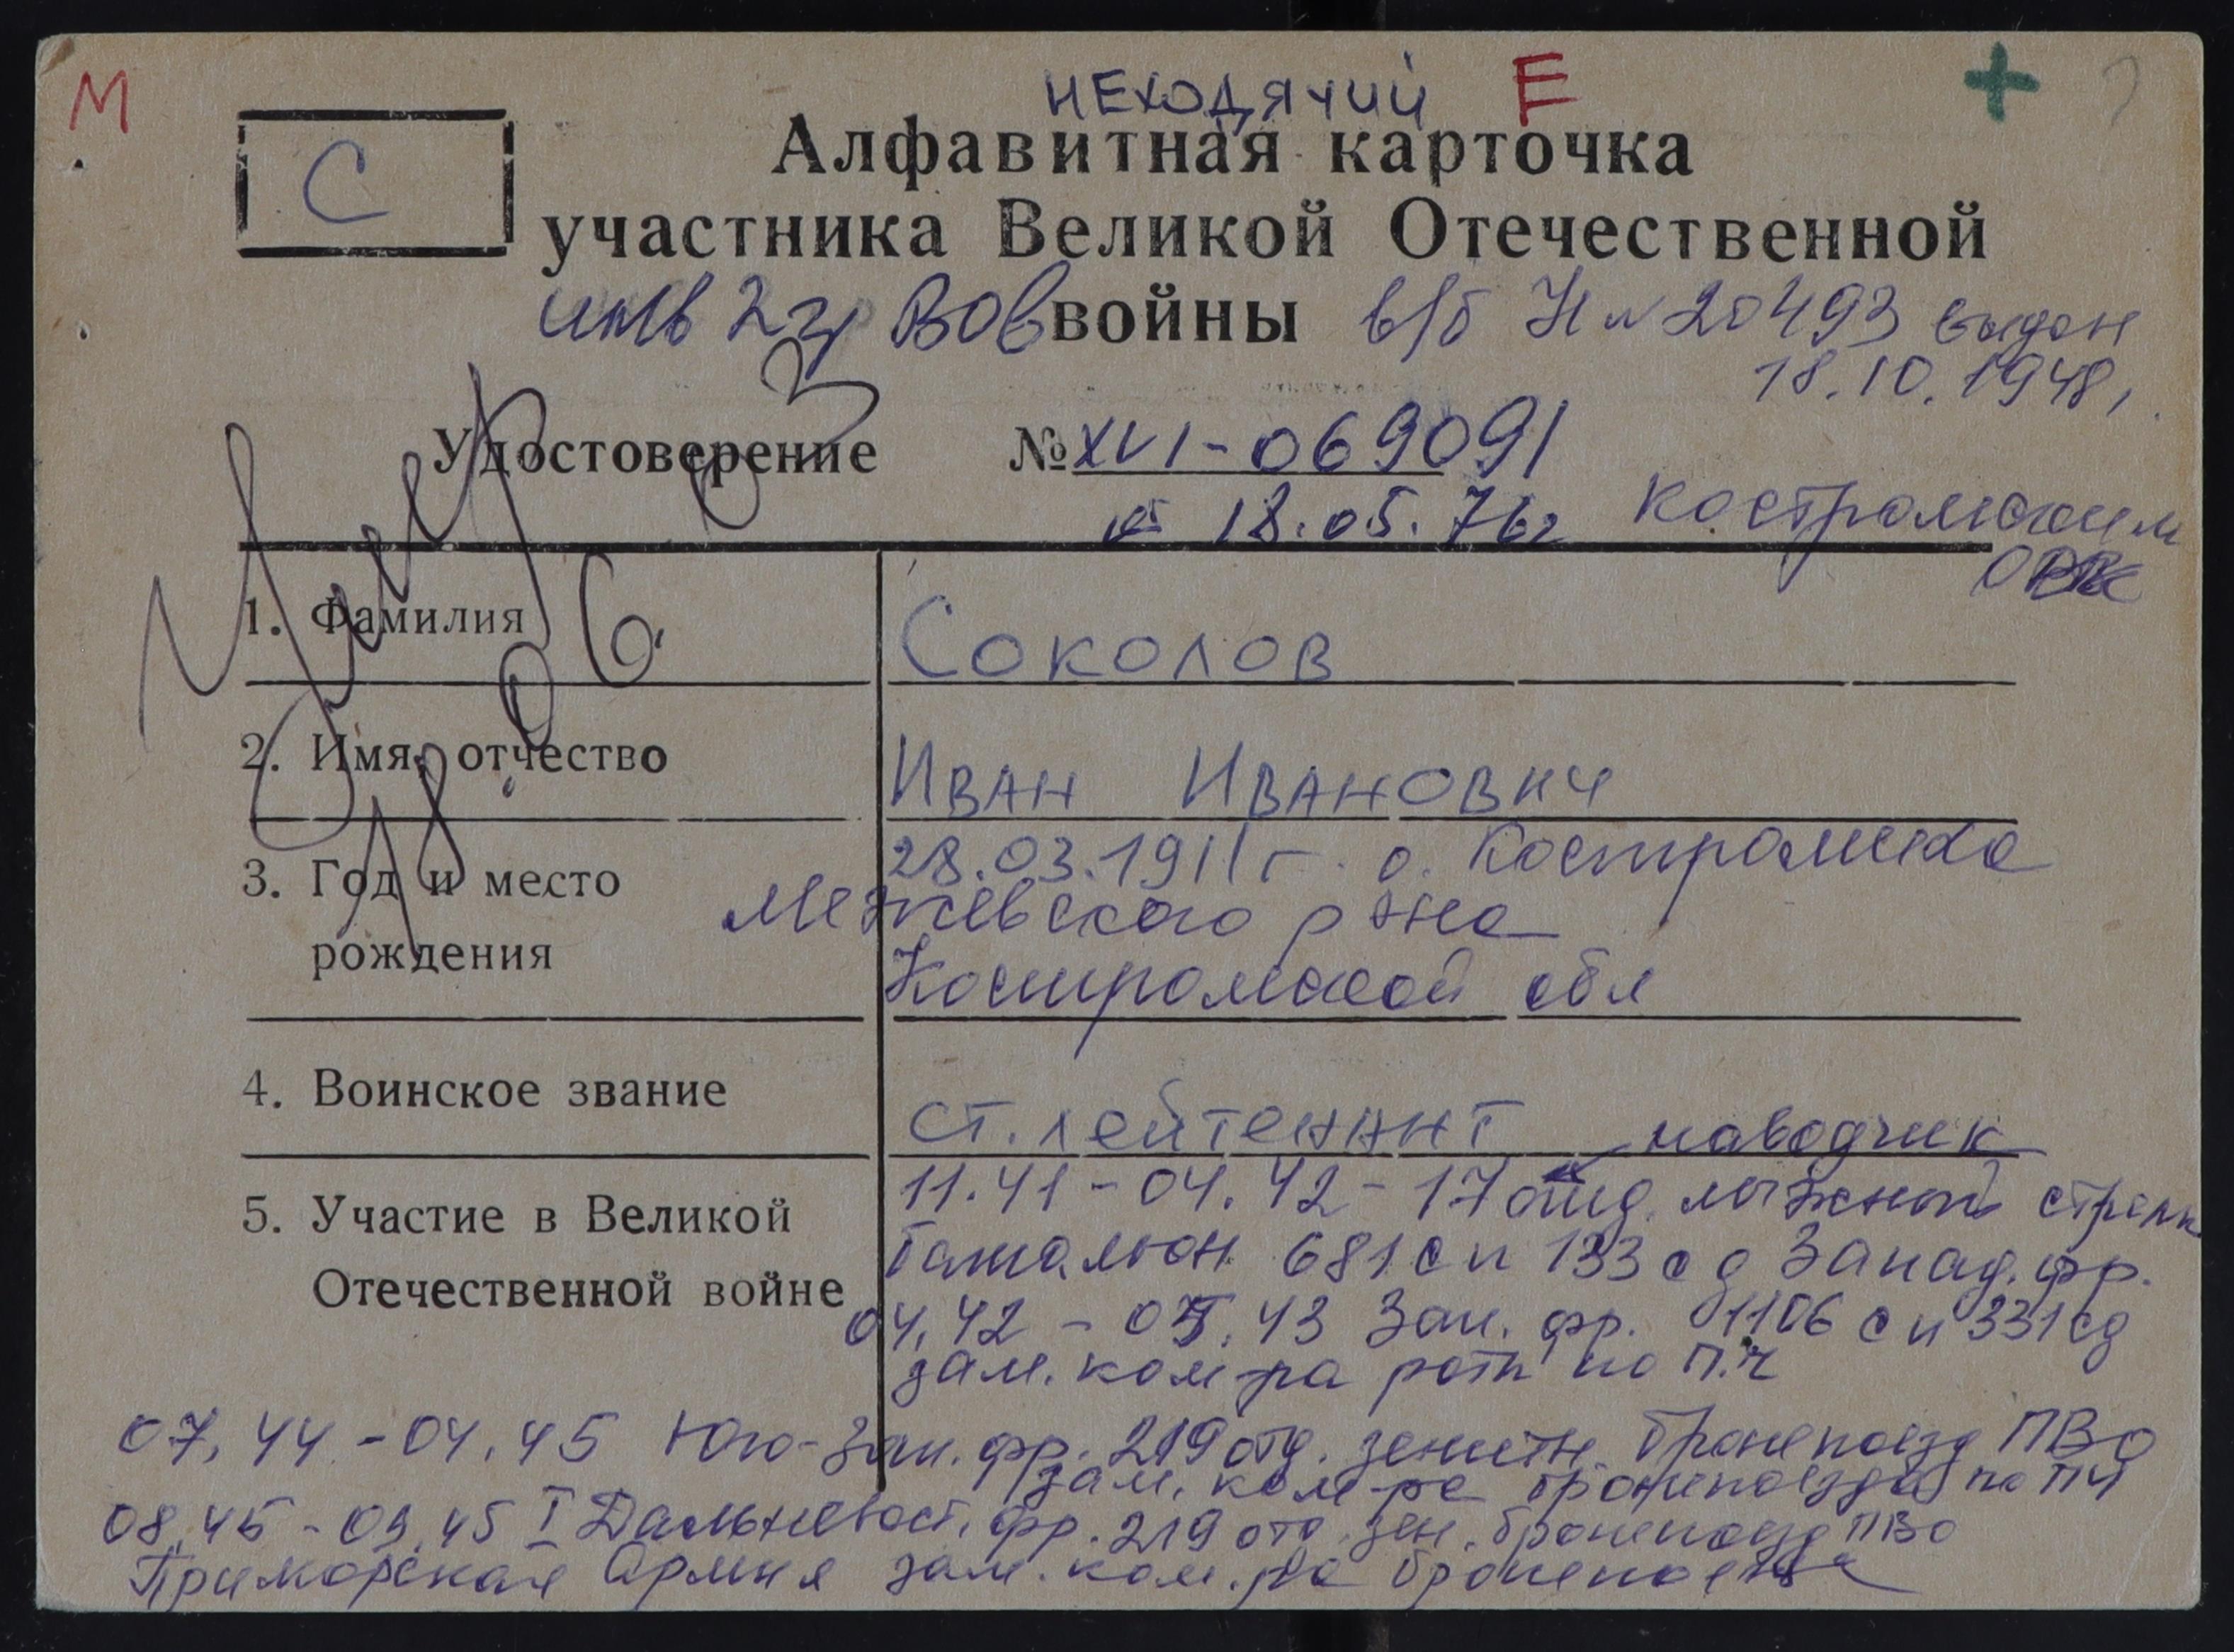 М
НЕХОДЯЧИЙ Е
С
Алфавитная карточка
участника Великой Отечественной
инв 2 гр ВОВ войны в/б Н № 20493 выдан
18.10.1948,
Удостоверение № XVI-069091
от 18.05.76г Костромским
ОВК
Умер
18.
1. Фамилия Соколов
2. Имя, отчество Иван Иванович
3. Год и место 28.03.1911г.
Межевского р-на
рождения Костромской обл
4. Воинское звание ст. лейтенант наводчик
5. Участие в Великой 11.41-04.42-17 отд. лыжный стрелк
батальон 681 сп 133 сд Запад. фр.
Отечественной войне
04.42 - 05.43 Зап. фр. 1106 сп 331 сд
зам. ком-ра роты по п.ч
07.44-04.45 Юго-Зап. фр. 219 отд. зенитн. бронепоезд ПВО
зам. ком-ра бронепоезда по ПЧ
08.45-09.45 I Дальневост. фр. 219 отд. зен. бронепоезд ПВО
Приморская Армия зам. ком-ра бронепоезда